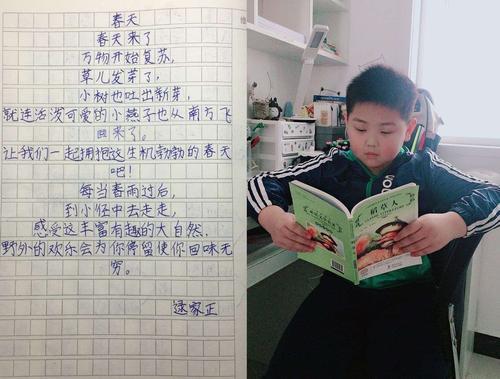 春天
春天来了
万物开始复苏,
草儿发芽了,
小树也吐出新芽,
就连活泼可爱的小燕子也从南方飞
回来了。
让我们一起拥抱这生机勃勃的春天
吧!
每当春雨过后,
到小径中去走走,
感受这丰富有趣的大自然,
野外的欢乐会为你停留使你回味无
穷。
逯家正
稻草人